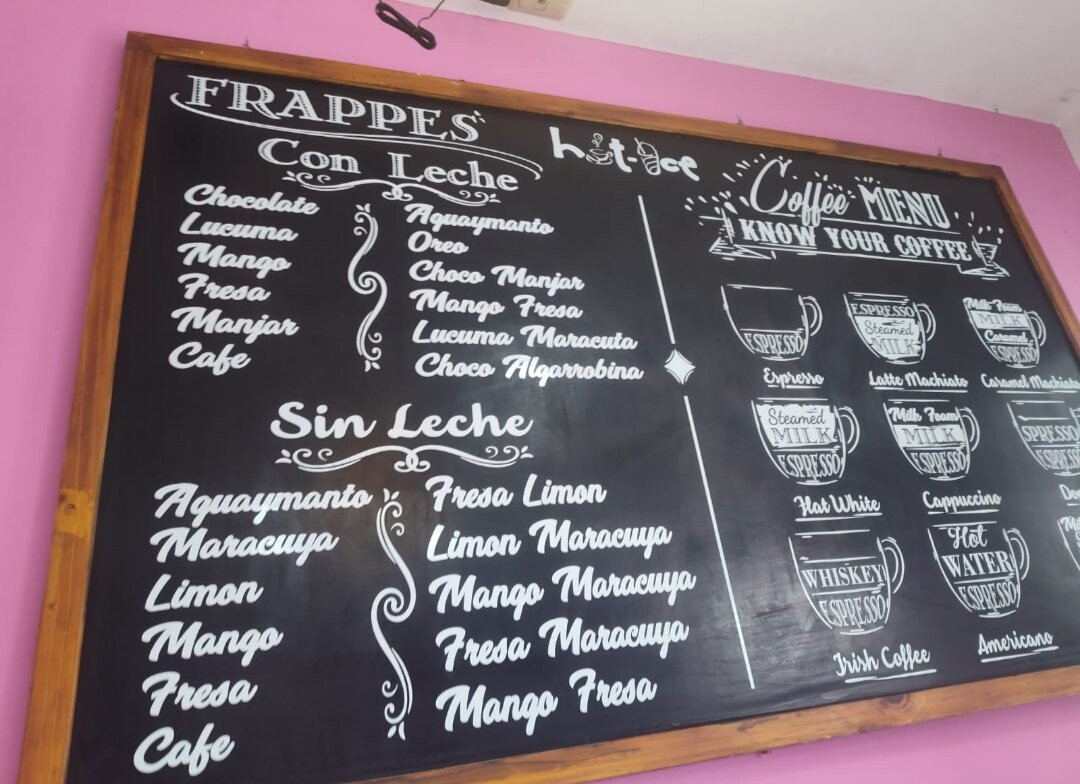 FRAPPES
Con Leche
Chocolate
Lucuma
Mango
Fresa
Manjar
Cafe
Aguaymanto
Oreo
Choco Manjar
Mango Fresa
Lucuma Maracuta
Choco Algarrobina
Sin Leche
Aguaymanto
Maracuya
Limon
Mango
Fresa
Cafe
Fresa Limon
Limon Maracuya
Mango Maracuya
Fresa Maracuya
Mango Fresa
hot-ice
Coffee MENU
KNOW YOUR COFFEE
ESPRESSO
Espresso
ESPRESSO
Steamed
MILK
Latte Machiato
Milk Foam
MILK
Caramel
ESPRESSO
Caramel Machiato
Steamed
MILK
ESPRESSO
Hot White
Milk Foam
MILK
ESPRESSO
Cappuccino
ESPRESSO
ESPRESSO
WHISKEY
ESPRESSO
Irish Coffee
Hot
WATER
ESPRESSO
Americano